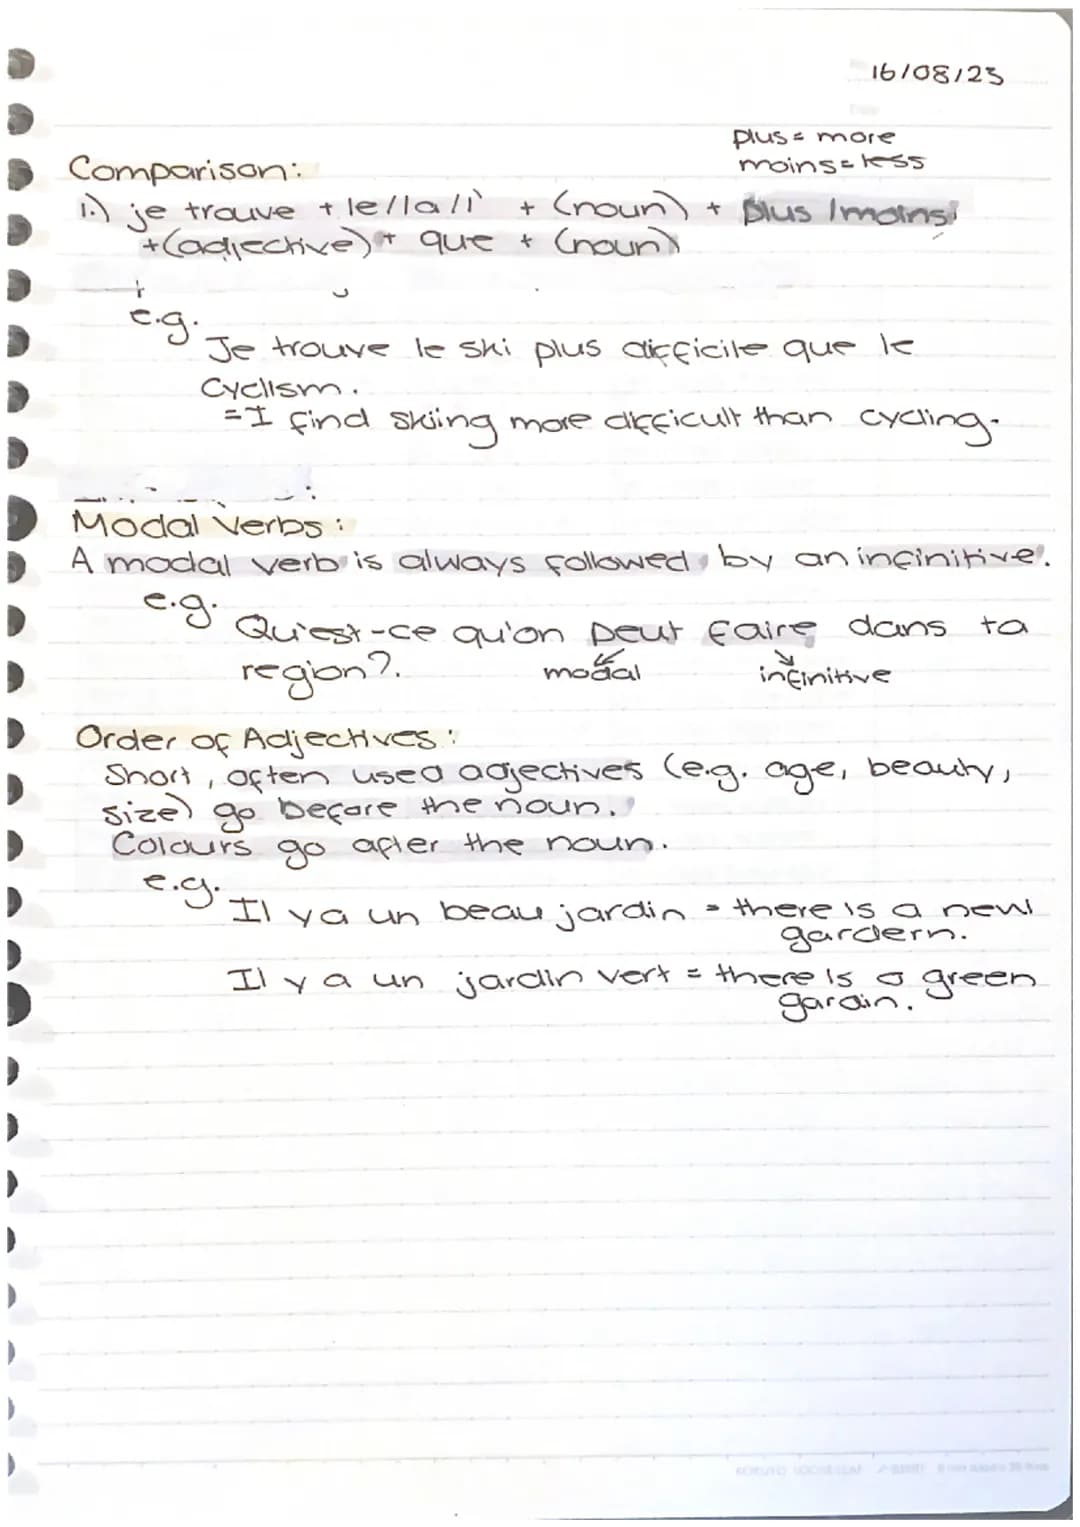 16/08/23
plus = more
moins = less
Comparison:
1.) je trouve + le/la/l' + (noun) + plus/moins
+(adjective) + que + (noun)
e.g.
Je trouve le ski plus difficile que le
cyclism.
= I find skiing more difficult than cycling.
Modal Verbs:
A modal verb is always followed by an infinitive.
e.g.
Qu'est-ce qu'on peut faire dans ta
region?.
modal infinitive
Order of Adjectives:
Short, often used adjectives (e.g. age, beauty,
size) go before the noun.
Colours go after the noun.
e.g.
Il ya un beau jardin = there is a new
gardern.
Il y a un jardin vert = there is a green
gardin.